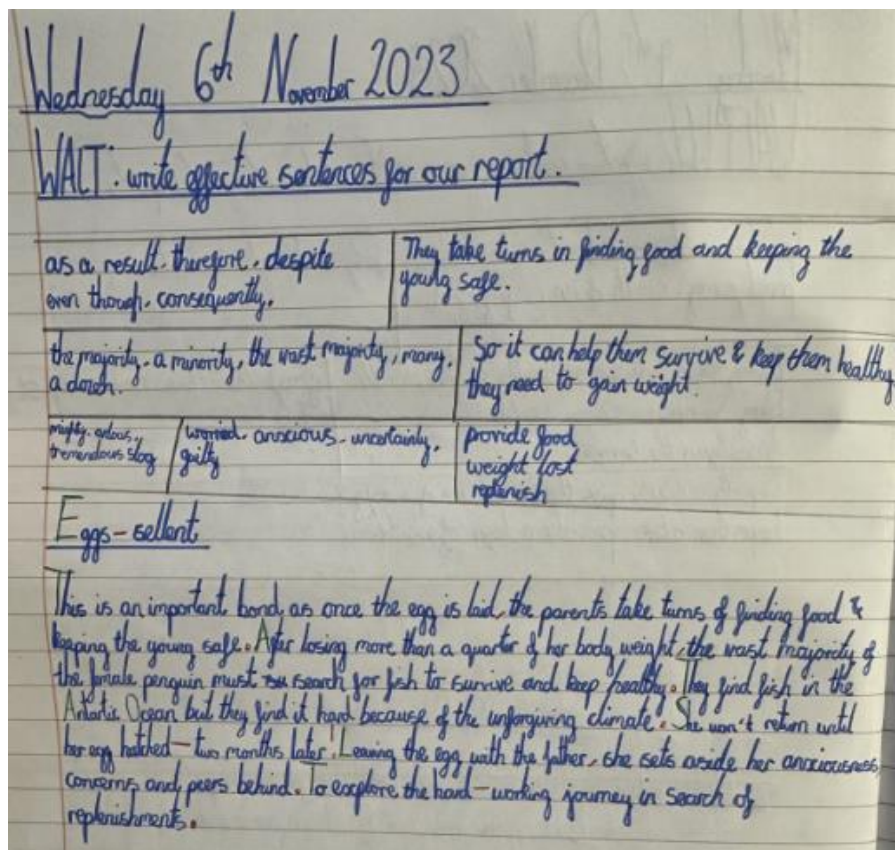 Wednesday 6th November 2023
WALT: write effective sentences for our report.
as a result. therefore. despite
even though. consequently.
They take turns in finding food and keeping the
young safe.
the majority. a minority, the vast majority, many.
a dozen.
So it can help them survive & keep them healthy
they need to gain weight.
mighty.
tremendous slog
worried. anxious. uncertainty.
guilty
provide food
weight lost
replenish
Eggs-sellent
This is an important bond, as once the egg is laid, the parents take turns of finding food &
keeping the young safe. After losing more than a quarter of her body weight, the vast majority of
the female penguin must search for fish to survive and keep healthy. They find fish in the
Antartic Ocean but they find it hard because of the unforgiving climate. She won't return until
her egg hatched – two months later! Leaving the egg with the father, she sets aside her anxiousness,
concerns and peers behind. To explore the hard-working journey in search of
replenishments.